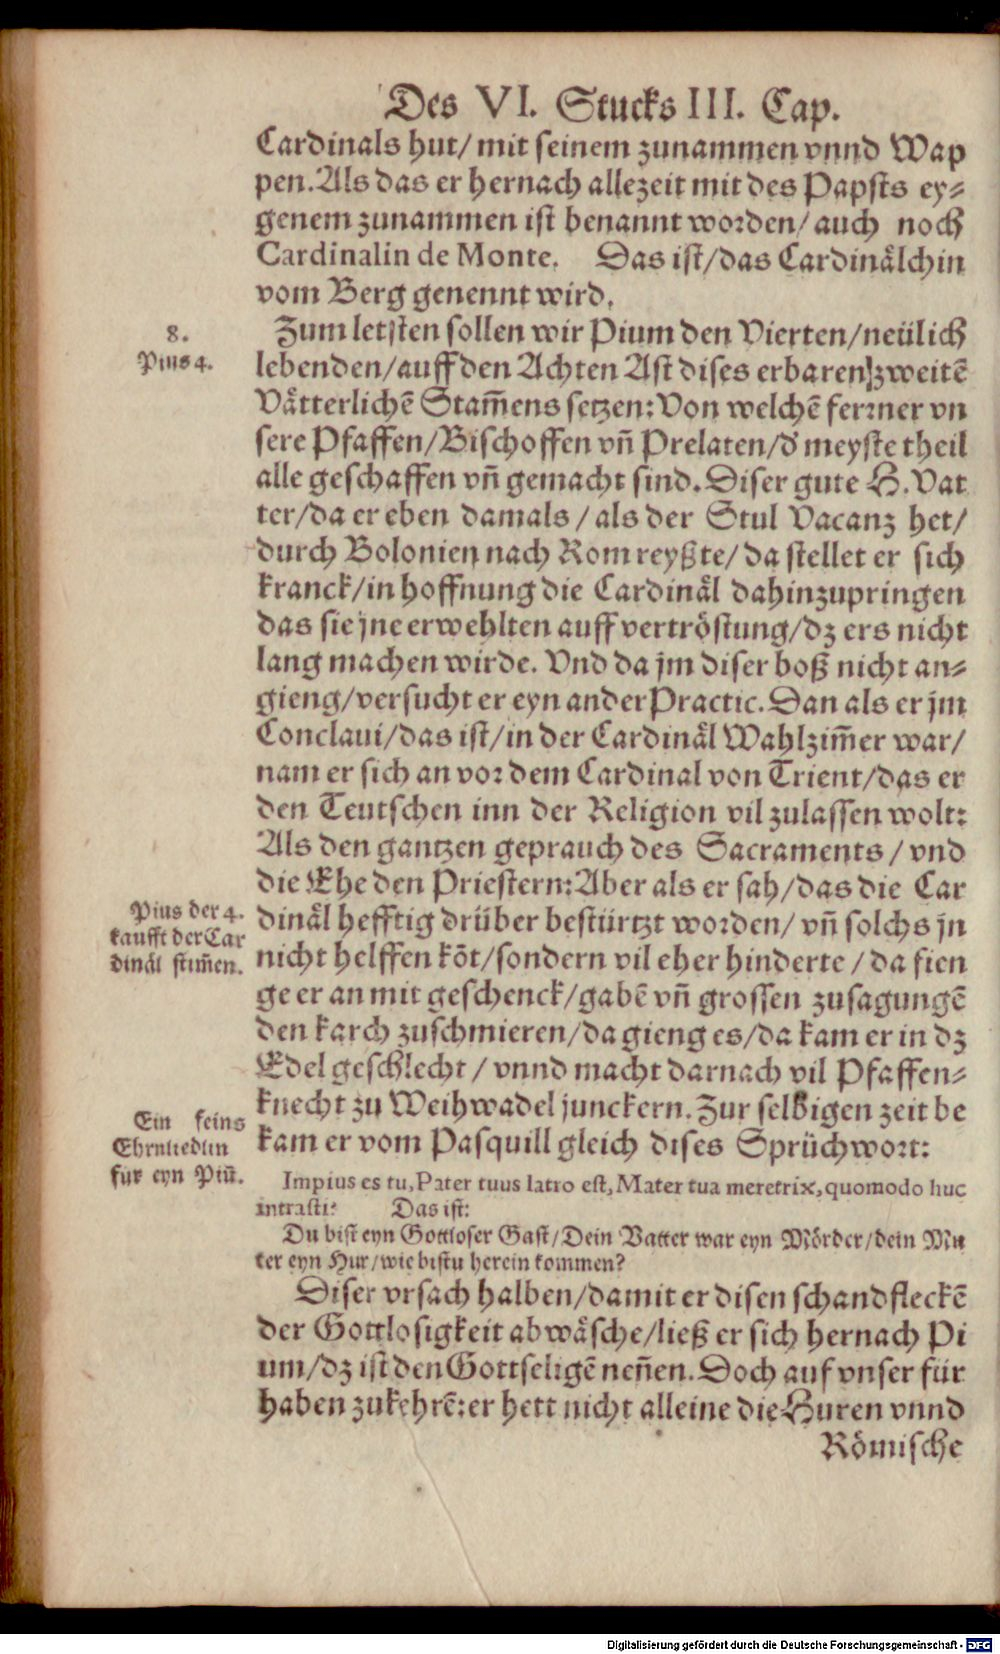 Des VI. Stucks III. Cap.
Cardinals hut/ mit seinem zunammen vnnd Wap
pen. Als das er hernach allezeit mit des Papsts ey⸗
genem zunammen ist benannt worden/ auch noch
Cardinalin de Monte. Das ist/ das Cardinaͤlchin
vom Berg genennt wird.
8.
Pius 4.
Zum letsten sollen wir Pium den Vierten/ neülich
lebenden/ auff den Achten Ast dises erbaren zweitē
Vaͤtterlichē Stam̄ens setzen: Von welchē ferrner vn
sere Pfaffen/ Bischoffen vn̄ Prelaten/ d' meyste theil
alle geschaffen vn̄ gemacht sind. Diser gute H. Vat
ter/ da er eben damals / als der Stul Vacanz het/
durch Bolonien nach Rom reyßte/ da stellet er sich
kranck/ in hoffnung die Cardinaͤl dahinzupringen
das sie jne erwehlten auff vertroͤstung/ dz ers nicht
lang machen wirde. Vnd da jm diser boß nicht an⸗
gieng/ versucht er eyn ander Practic. Dan als er jm
Conclaui/ das ist/ in der Cardinaͤl Wahlzim̄er war/
nam er sich an vor dem Cardinal von Trient/ das er
den Teutschen inn der Religion vil zulassen wolt:
Als den gantzen geprauch des Sacraments / vnd
die Ehe den Priestern: Aber als er sah/ das die Car
Pius der 4.
kaufft der Car
dinaͤl stim̄en.
dinaͤl hefftig drüber bestürtzt worden/ vn̄ solchs jn
nicht helffen koͤ̄t/ sondern vil eher hinderte / da fien
ge er an mit geschenck/ gabē vn̄ grossen zusagungē
den karch zuschmieren/ da gieng es/ da kam er in dz
Edel geschlecht / vnnd macht darnach vil Pfaffen⸗
knecht zu Weihwadel junckern. Zur selbigen zeit be
Ein feins
Ehrnliedlin
für eyn Piū.
kam er vom Pasquill gleich dises Sprüchwort:
Impius es tu, Pater tuus latro est, Mater tua meretrix, quomodo huc
intrasti? Das ist:
Du bist eyn Gottloser Gast/ Dein Vatter war eyn Moͤrder/ dein Mu
ter eyn Hur/ wie bistu herein kommen?
Diser vrsach halben/ damit er disen schandfleckē
der Gottlosigkeit abwaͤsche/ ließ er sich hernach Pi
um/ dz ist den Gottseligē nen̄en. Doch auf vnser für
haben zukehrē: er hett nicht alleine die Huren vnnd
Roͤmische
Digitalisierung gefördert durch die Deutsche Forschungsgemeinschaft - DFG